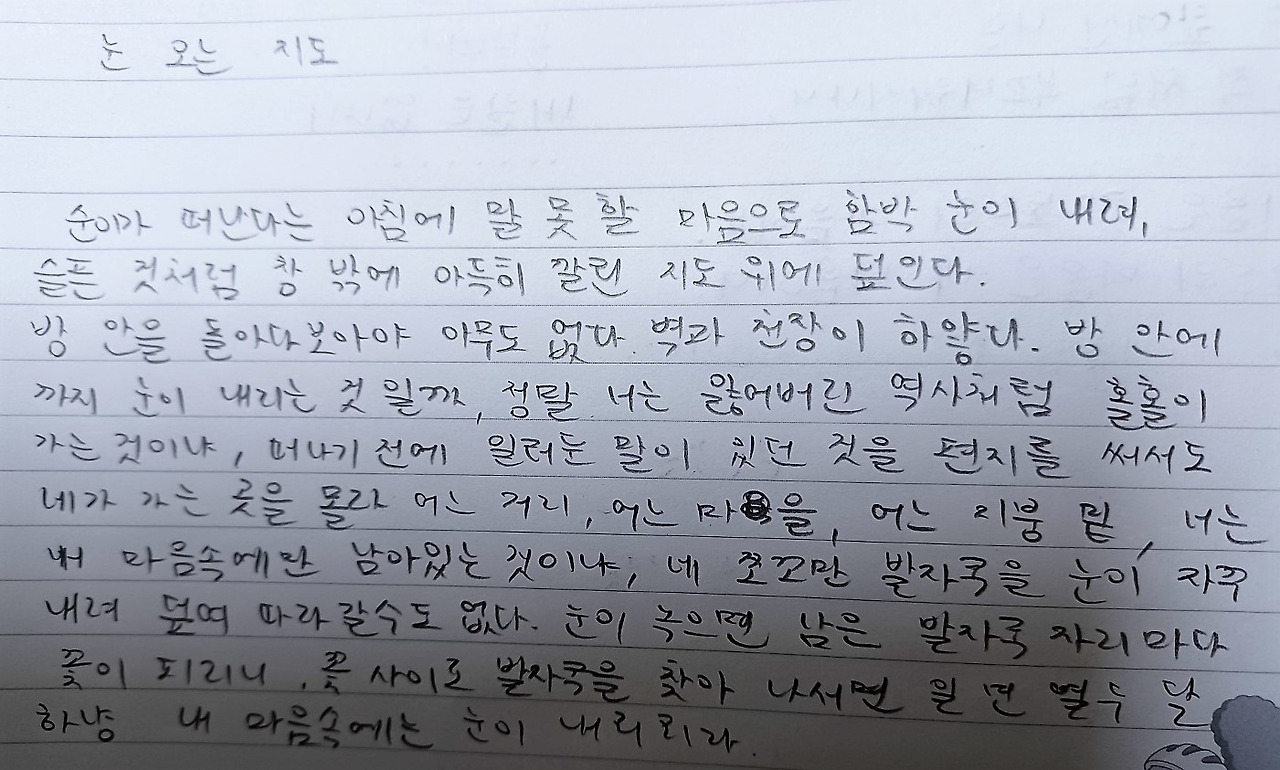 눈 오는 지도
순이가 떠난다는 아침에 말 못 할 마음으로 함박 눈이 내려,
슬픈 것처럼 창 밖에 아득히 깔린 지도 위에 덮인다.
방 안을 돌아다보아야 아무도 없다. 벽과 천장이 하얗다. 방 안에
까지 눈이 내리는 것 일까, 정말 너는 잃어버린 역사처럼 홀홀이
가는 것이냐, 떠나기 전에 일러둔 말이 있던 것을 편지를 써서도
네가 가는 곳을 몰라 어느 거리, 어느 마을, 어느 지붕 밑, 너는
내 마음속에만 남아있는 것이냐, 네 쪼꼬만 발자국을 눈이 자꾸
내려 덮여 따라 갈수도 없다. 눈이 녹으면 남은 발자국 자리마다
꽃이 피리니, 꽃 사이로 발자국을 찾아 나서면 일 년 열두 달
하냥 내 마음속에는 눈이 내리리라.